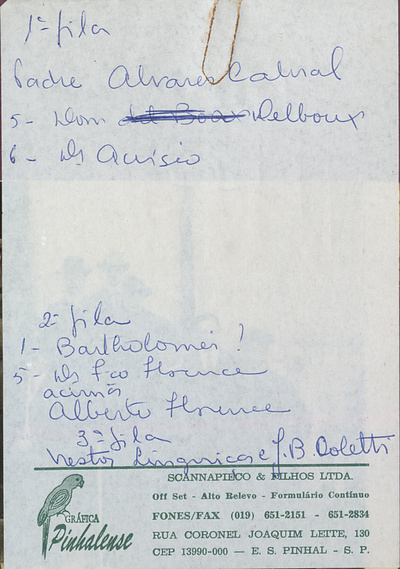 1ª fila
Padre Alvares Cabral
5 - Dom Delboux
6 - Dr Acrisio
2ª fila
1 - Bartholomei !
5 - Dr Fco Florence
acima
Alberto Florence
3ª fila
Nestor e J. B. Coletti
SCANNAPIECO & FILHOS LTDA.
Off Set - Alto Relevo - Formulário Contínuo
GRÁFICA
Pinhalense
FONES/FAX (019) 651-2151 - 651-2834
RUA CORONEL JOAQUIM LEITE, 130
CEP 13990-000 — E. S. PINHAL - S. P.